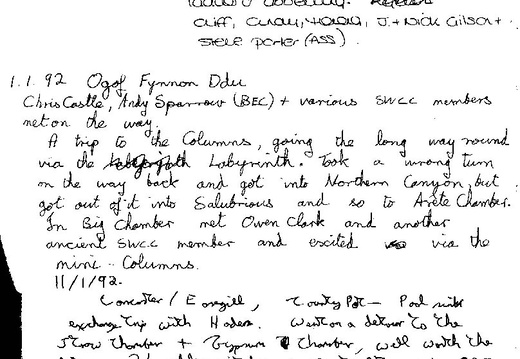 Cliff, J + Nick Gilson +
Steve Porter (ASS).
1.1.92 Ogof Fynnon Ddu
Chris Castle, Andy Sparrow (BEC) + various SWCC members
met on the way.
A trip to the Columns, going the long way round
via the Labyrinth. Took a wrong turn
on the way back and got into Northern Canyon, but
got out of it into Salubrious and so to Arete Chamber.
In Big Chamber met Owen Clark and another
ancient SWCC member and exited via the
mini-Columns.
11/1/92.
Lancaster / Easegill, County Pot - Pool sink
exchange trip with Went on a detour to the
Straw Chamber + Gypsum Chamber, well worth the